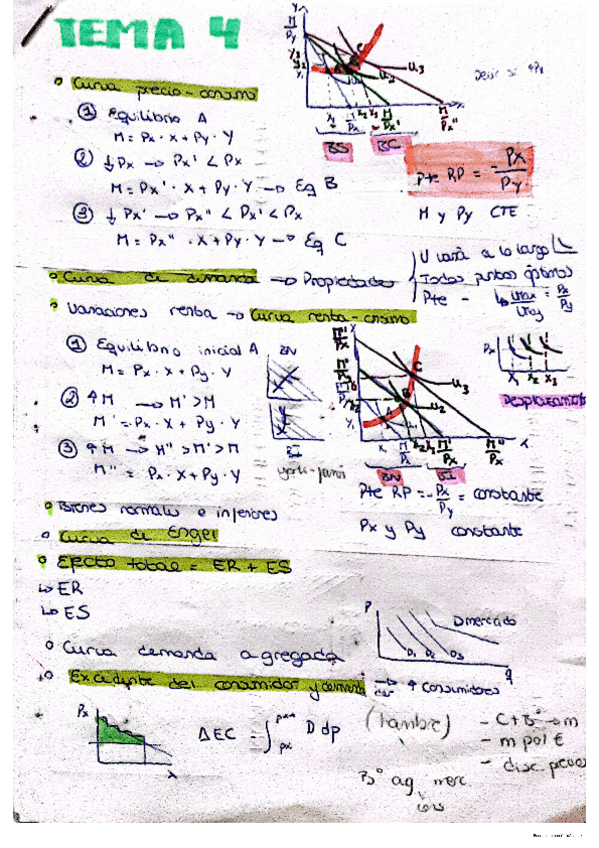 TEMA 4
Curva precio-consumo
① Equilibrio A
M = Px · X + Py · Y
② ↓ Px → Px' < Px
M = Px' · X + Py · Y → Eq B
③ ↓ Px' → Px'' < Px' < Px
M = Px'' · X + Py · Y → Eq C
Y
M/Py
C
U3
X
M/Px'
M/Px''
BS
BC
Pte RP = - Px/Py
M y Py CTE
Curva de demanda → Propiedades
U varía a lo largo
Todos puntos óptimos
Pte -
UMax/UMay = Px/Py
Variaciones renta → Curva renta-consumo
① Equilibrio inicial A
M = Px · X + Py · Y
② ↑ M → M' > M
M' = Px · X + Py · Y
③ ↑ M → M'' > M' > M
M'' = Px · X + Py · Y
BN
BI
C
B
A
U3
U2
X
M/Px
M'/Px
M''/Px
BN
BI
Px
X1 X2 X3
Desplazamiento
Pte RP = - Px/Py = constante
Px y Py constante
Bienes normales e inferiores
Curva de Engel
Efecto total = ER + ES
↳ ER
↳ ES
Curva demanda agregada
P
D mercado
D1 D2 D3
q
Excedente del consumidor y
↑ Consumidores
Px
X
ΔEC = ∫ D dp
- C + Bº → m
- m pol €
- disc.
Bº ag merc